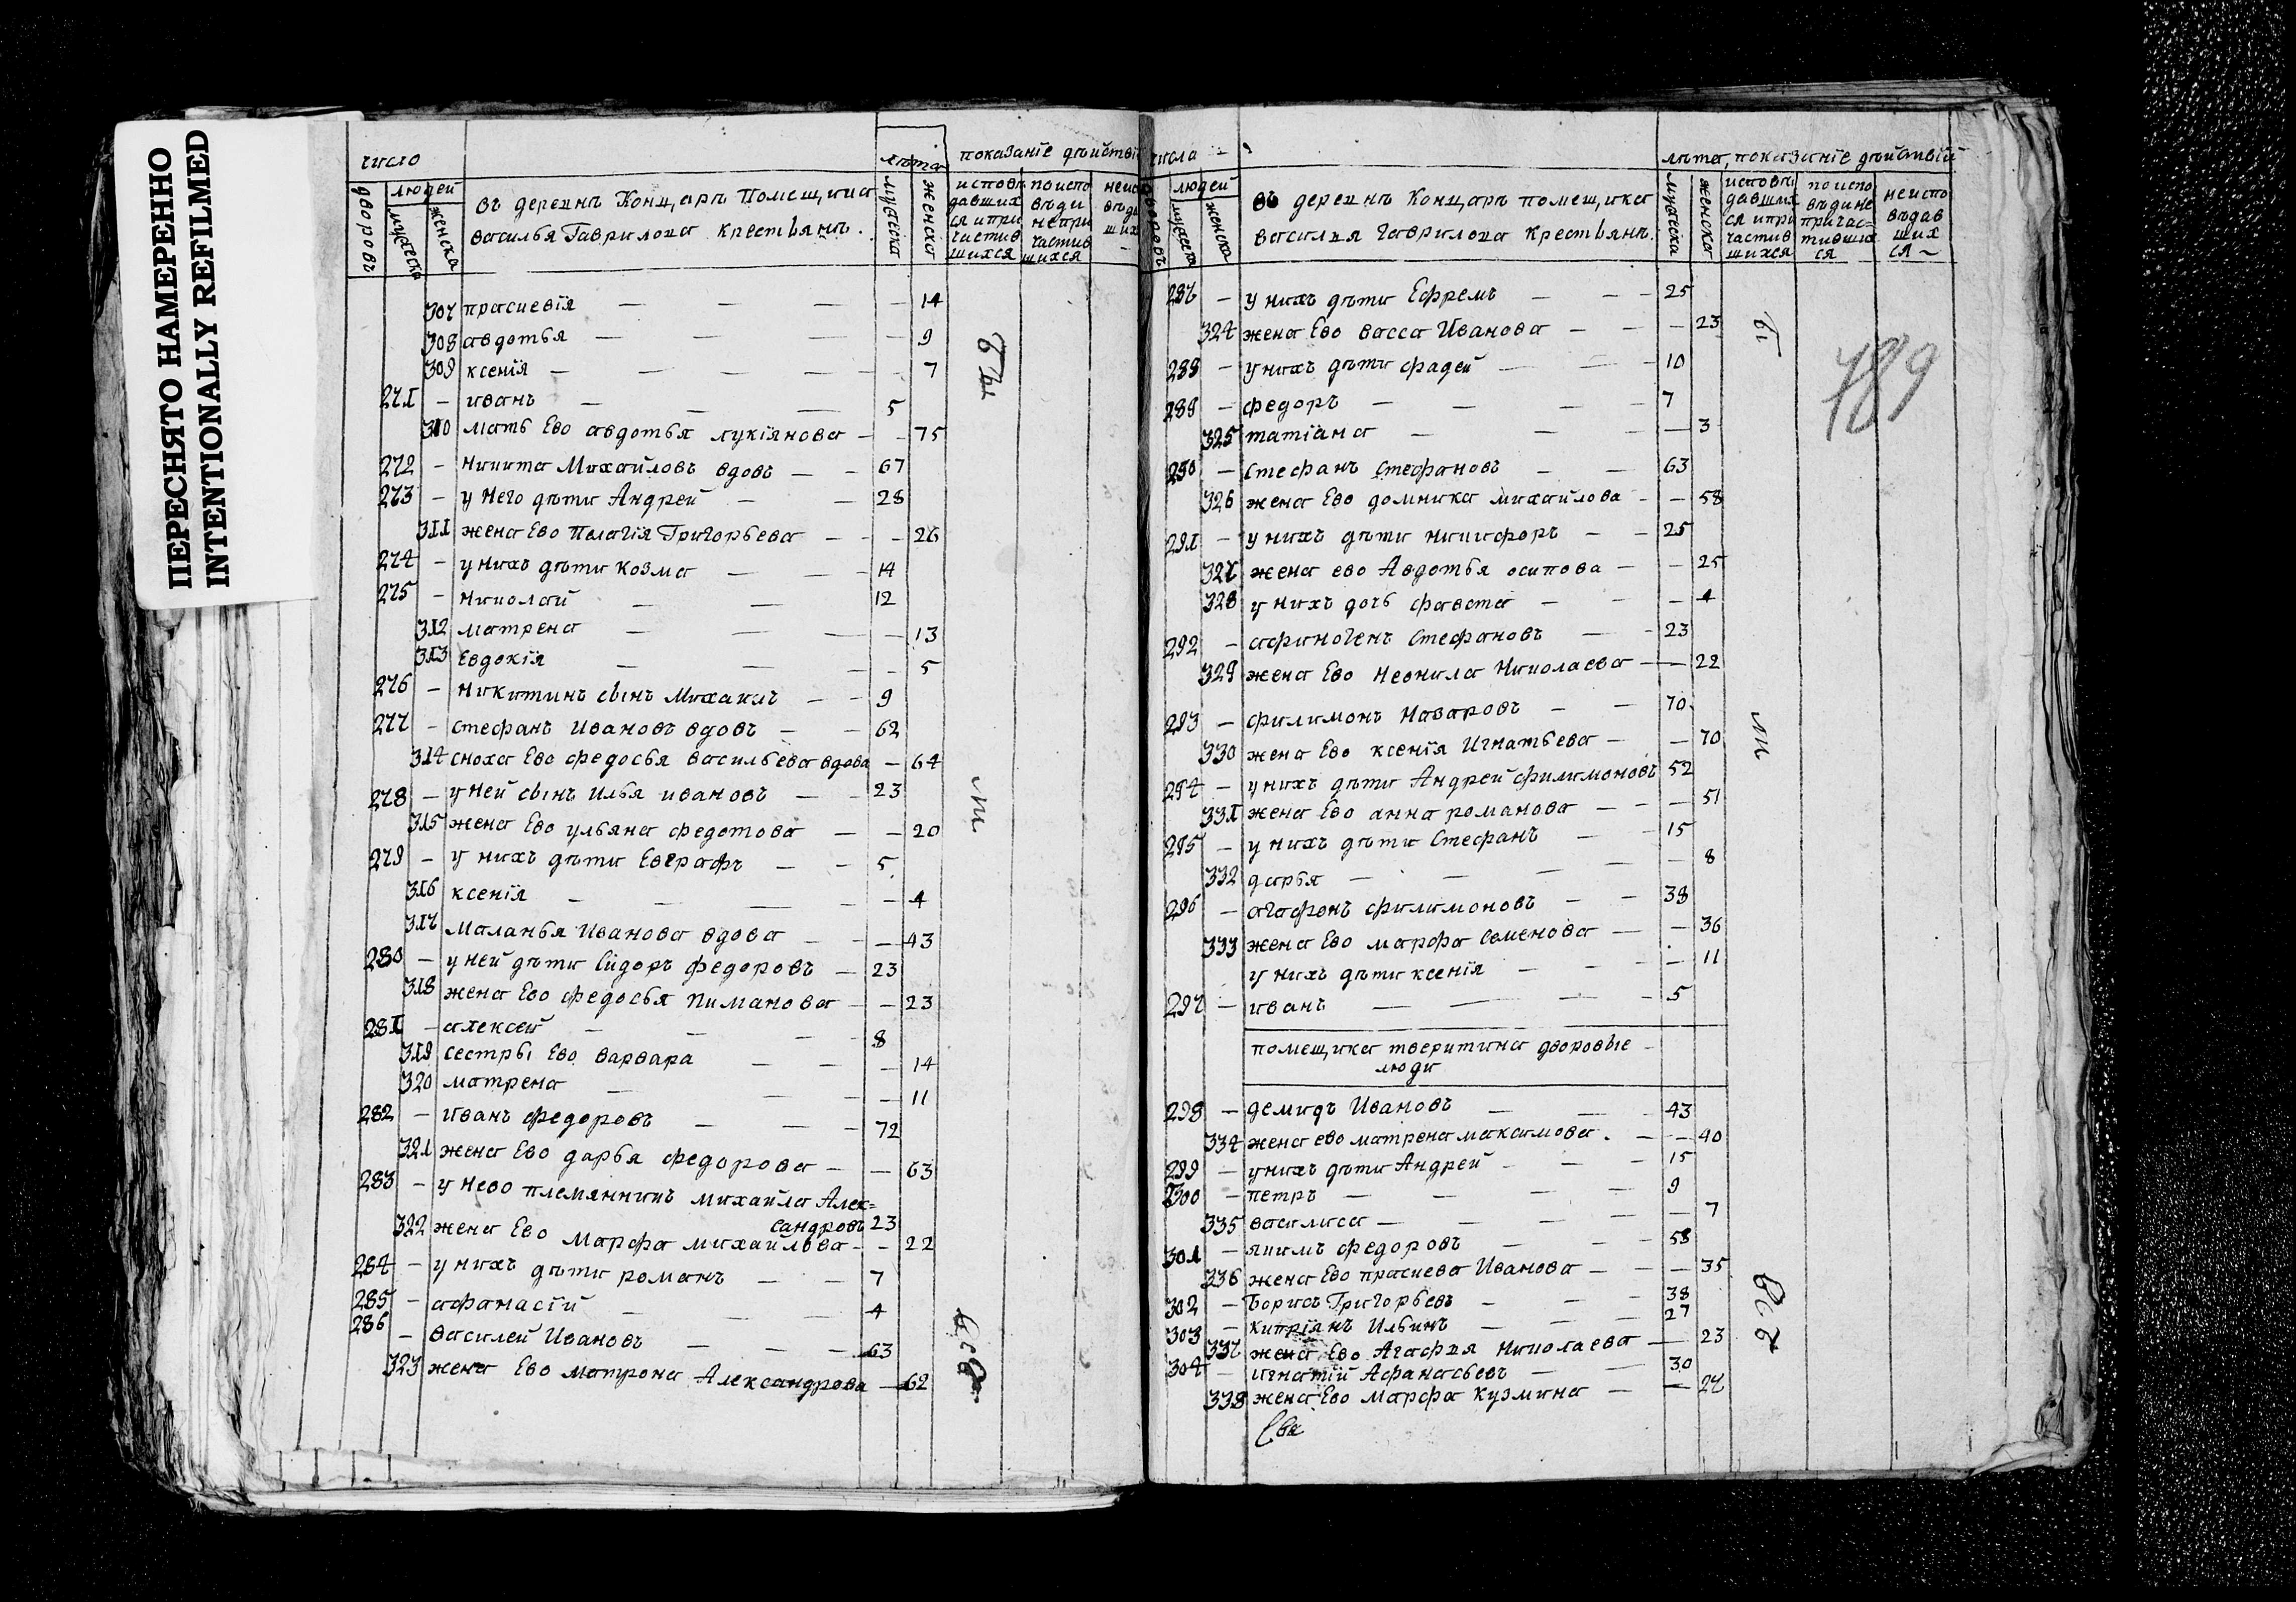 ПЕРЕСНЯТО НАМЕРЕННО
INTENTIONALLY REFILMED
число
лѣта
показанїе дѣиствїи
дворовъ
людей
мужеска
женска
въ деревнѣ Концарѣ Помещика
василья Гаврилова крестьянъ.
мужеска
женска
исповѣ
давших
ся и при
частив
шихся
по испо
вѣди
непри
частив
шихся
неис
вѣда
ших
307 прасковїя — — — — 14
308 авдотья — — — — 9
309 ксенїя — — — — — 7
271 — иванъ — — — 5
310 мать Ево авдотья лукїянова — — 75
272 — никита Михайловъ вдовъ — — 67
273 — у Него дѣти Андрей — — 28
311 жена Ево Пелагїя Григорьева — — 26
274 — у нихъ дѣти козма — — — 14
275 — николай — — 12
312 матрена — — — — 13
313 Евдокїя — — — — 5
276 — Никитинъ сынъ Михаилъ — — 9
277 — стефанъ Ивановъ вдовъ — — 62
314 сноха Ево федосья васильева вдова — 64
278 — у ней сынъ илья ивановъ — — 23
315 жена Ево ульяна федотова — — 20
279 — у нихъ дѣти Евграфъ — — 5
316 ксенїя — — — — — 4
317 Маланья Иванова вдова — — — 43
280 — у ней дѣти Сидоръ федоровъ — 23
318 жена Ево федосья Пиманова — — 23
281 — алексей — — — — 8
319 сестры Ево варвара — — — 14
320 матрена — — — 11
282 — иванъ федоровъ — — — 72
321 жена Ево дарья федорова — — 63
283 — у Нево племянникъ михайла Алек=
сандровъ 23
322 жена Ево Марфа михайлова — — 22
284 — у нихъ дѣти романъ — — 7
285 — афанасїй — — — 4
286 — василей Ивановъ — — — 63
323 жена Ево матрона Александрова — 62
бы
ли
все
числа
лѣта, показанїе дѣиствїй
дворовъ
людей
мужеска
женска
въ деревнѣ Концарѣ помещика
василия гаврилова крестьянъ.
мужеска
женска
исповѣ
давших
ся и при
частив
шихся
по испо
вѣди не
причас=
тивших
ся
неиспо
вѣдав
ших
ся ~
789
287 — у нихъ дѣти Ефремъ — — — 25
324 жена Ево васса Иванова — — — 23
288 — у нихъ дѣти фадей — — — 10
289 — федоръ — — — 7
325 татїана — — — — 3
290 — Стефанъ Стефановъ — — 63
326 жена Ево домника михайлова — — 58
291 — у нихъ дѣти никифоръ — — 25
327 жена ево Авдотья осипова — — 25
328 у нихъ дочь фавста — — — 4
292 — афиногенъ Стефановъ — — 23
329 жена Ево Неонила Николаева — — 22
293 — филимонъ Назаровъ — — 70
330 жена Ево ксенїя Игнатьева — — 70
294 — у нихъ дѣти Андрей филимоновъ 52
331 жена Ево анна романова — — — 51
295 — у нихъ дѣти Стефанъ — — 15
332 дарья — — — — — 8
296 — агафонъ филимоновъ — — 38
333 жена Ево марфа семенова — — 36
у нихъ дѣти ксенїя — — — — 11
297 — иванъ — — — — 5
помещика тверитина дворовые
люди
298 — демидъ Ивановъ — — — 43
334 жена ево матрена максимова. — — 40
299 — у нихъ дѣти Андрей — — — 15
300 — петръ — — — — 9
335 василиса — — — — — 7
301 — якимъ федоровъ — — 58
336 жена Ево прасковья Иванова — — — 35
302 — Борисъ Григорьевъ — — — 38
303 — Кипрїянъ Ильинъ — — — 27
337 жена Ево Агафия Николаева — 23
304 — игнатїй Афанасьевъ — — 30
338 жена Ево Марфа кузмина — — 27
б
ли
все